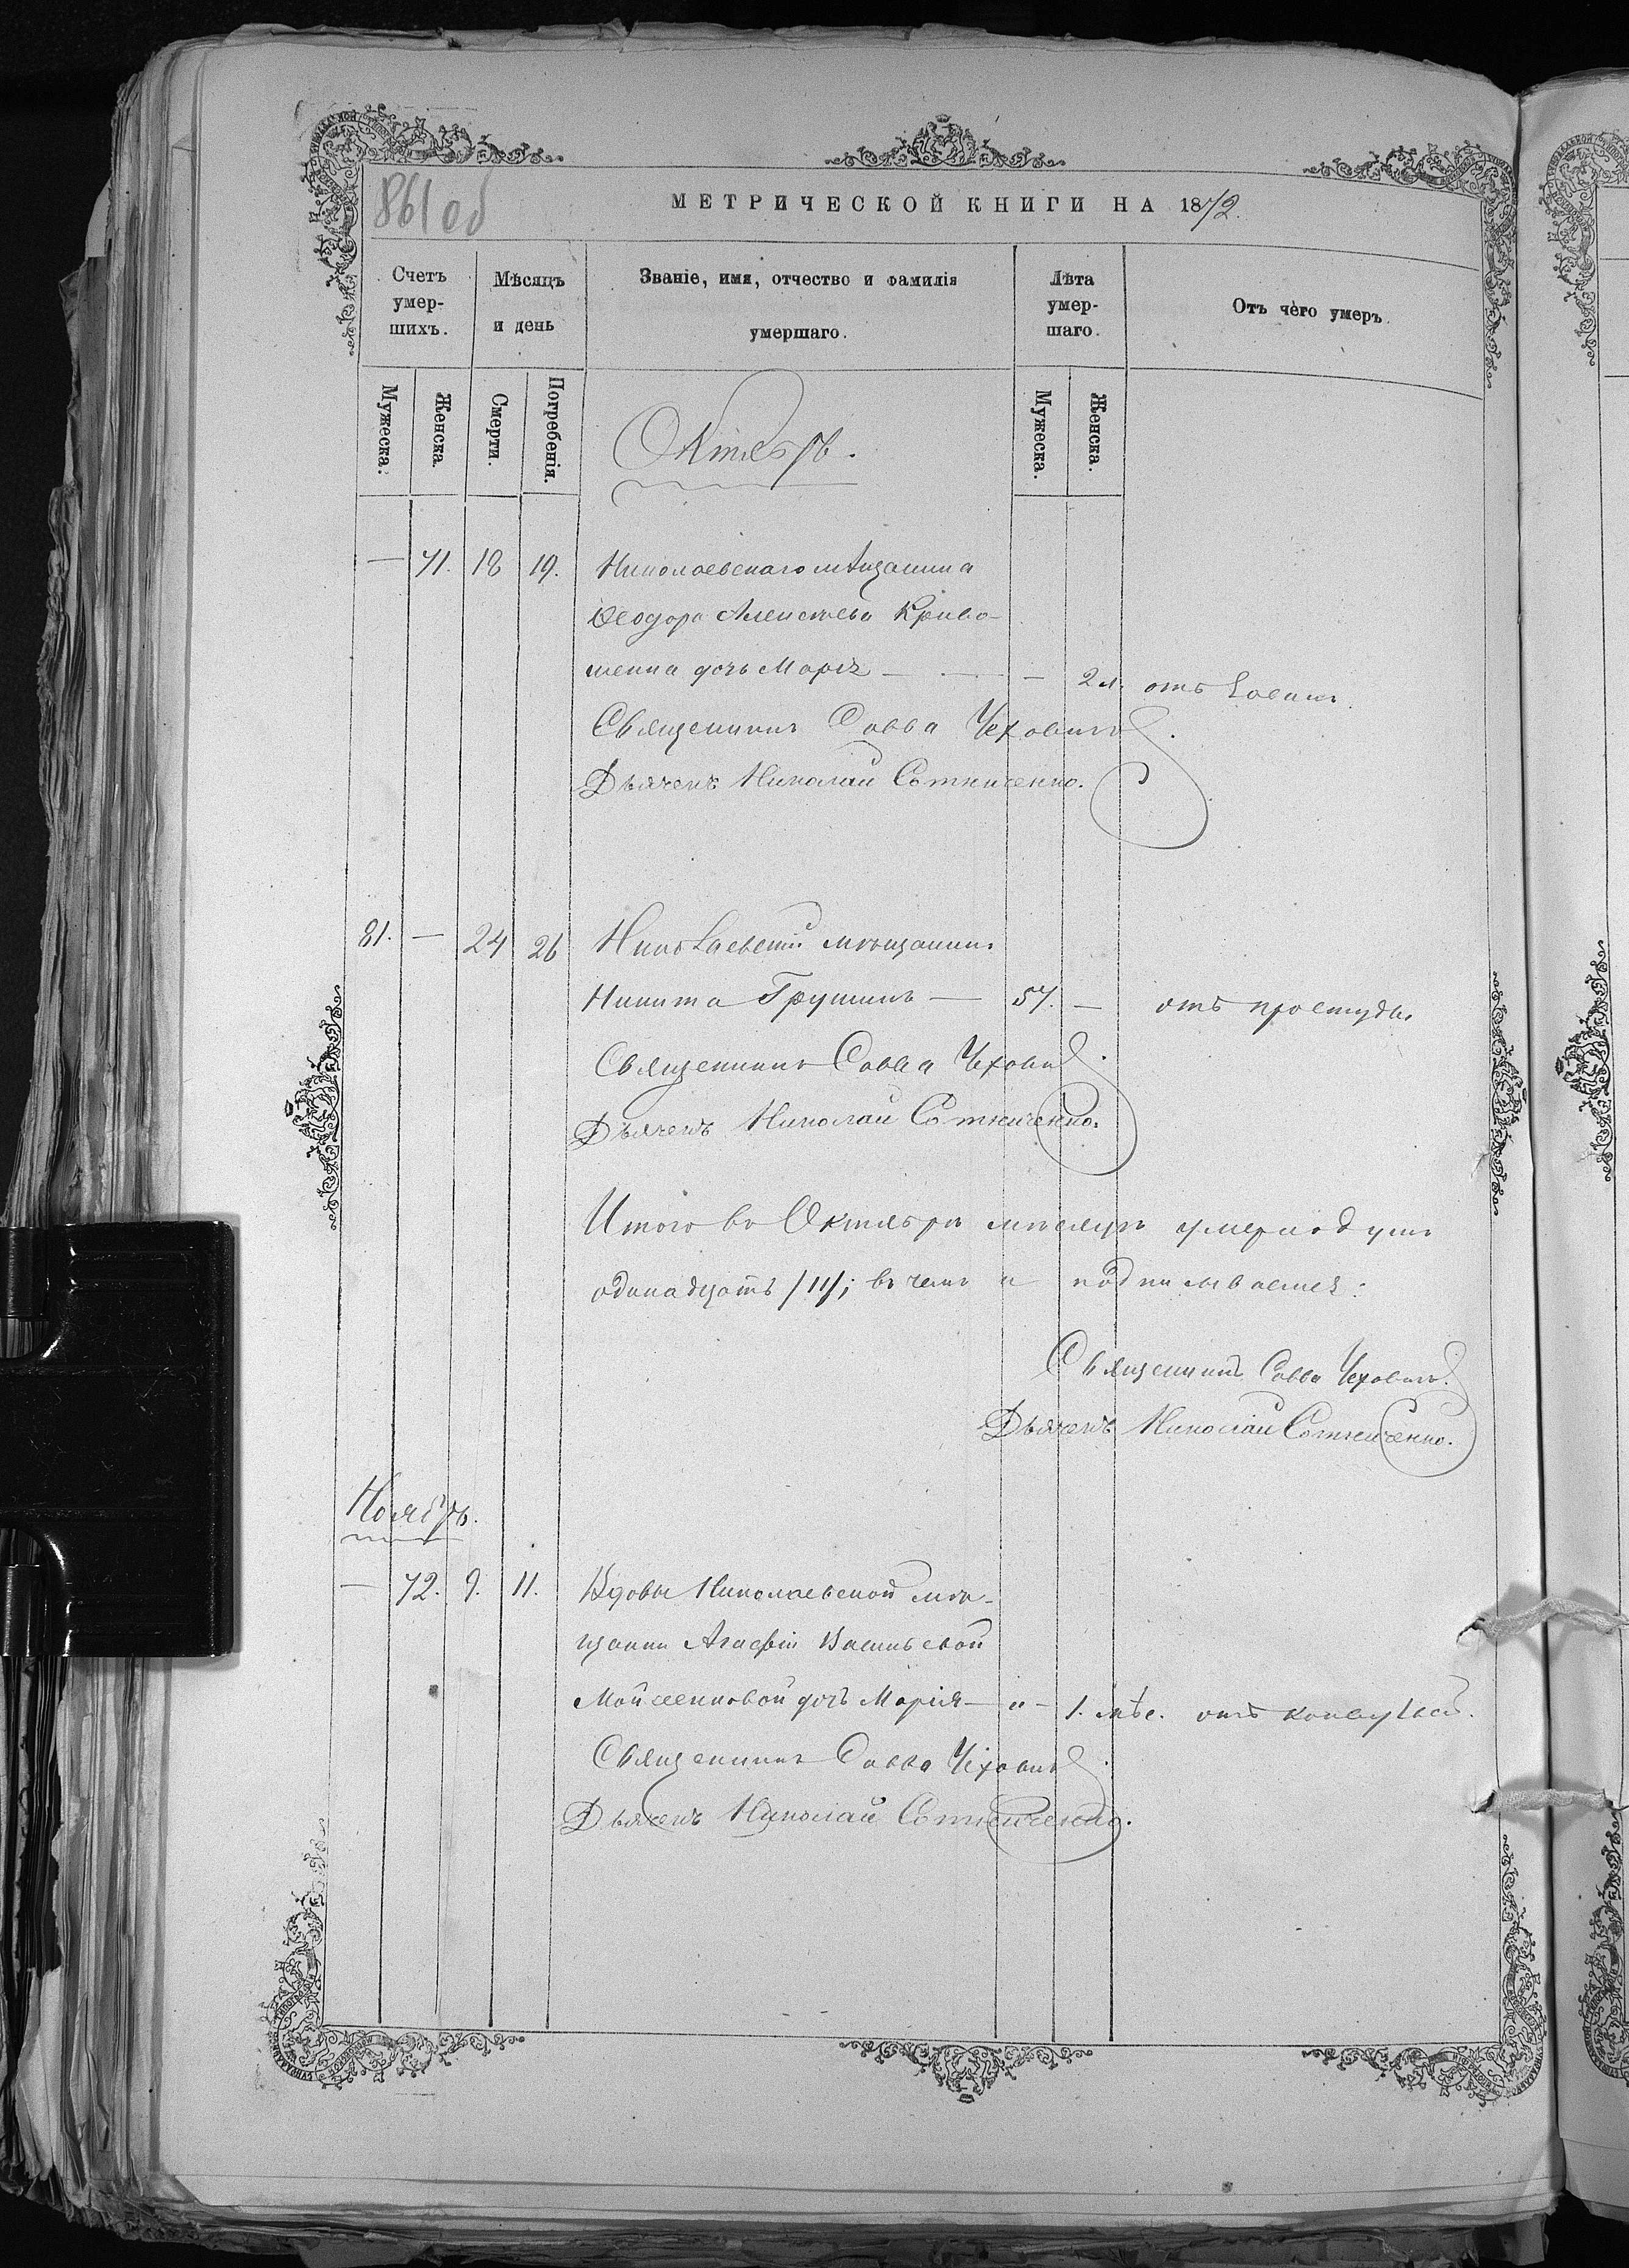 861 об
МЕТРИЧЕСКОЙ КНИГИ НА 1872.
Счетъ умер-шихъ.
Мѣсяцъ и день
Званіе, имя, отчество и фамилія умершаго.
Лѣта умер-шаго.
Отъ чего умеръ.
Мужеска.
Женска.
Смерти.
Погребенія.
Мужеска.
Женска.
Октябрь.
— 71. 18 19. Николаевскаго мѣщанина
Ѳеодора Алексѣева Криво-
шеина дочь Марія — — 2 л. отъ
Священникъ Савва Чеховичъ.
Дьячекъ Николай Сотниченко.
81. — 24 26 Николаевскій мѣщанинъ
Никита Грушинъ — 57. — отъ простуды
Священникъ Савва Чеховичъ.
Дьячекъ Николай Сотниченко.
Итого въ Октябрѣ мѣсяцѣ умерло душъ
одинадцать /11/; въ чемъ и подписываемся:
Священникъ Савва Чеховичъ.
Дьячекъ Николай Сотниченко.
Ноябрь.
— 72. 9. 11. Вдовы Николаевской мѣ-
щанки Агафіи Васильевой
Мойсеенковой дочь Марія — " — 1. мѣс. отъ конвульсій.
Священникъ Савва Чеховичъ.
Дьячекъ Николай Сотниченко.